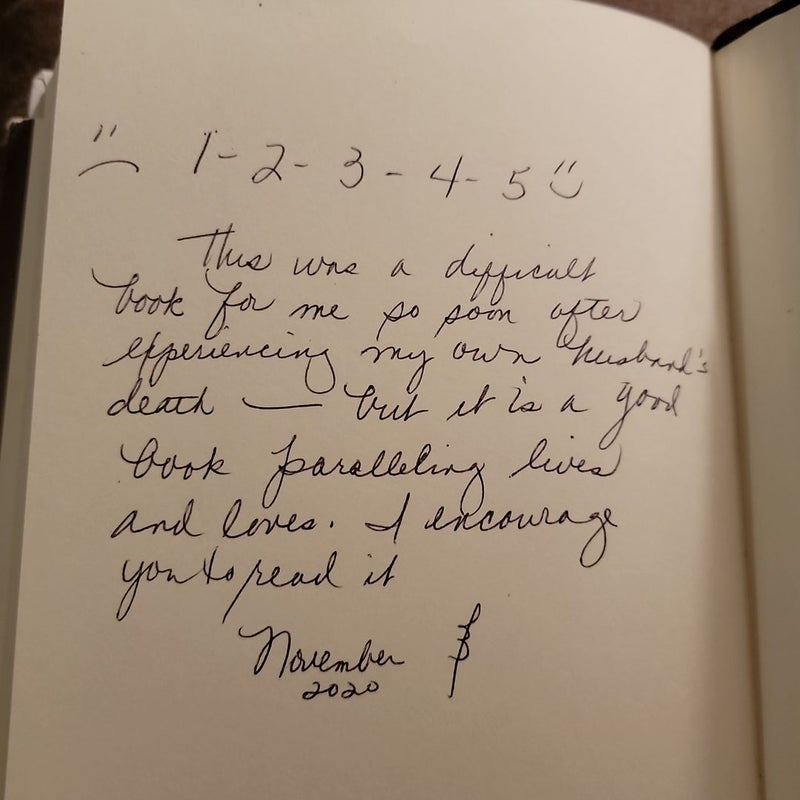 1 - 2 - 3 - 4 - 5
This was a difficult
book for me so soon after
experiencing my own husband's
death — but it is a good
book paralleling lives
and loves. I encourage
you to read it
November
2020